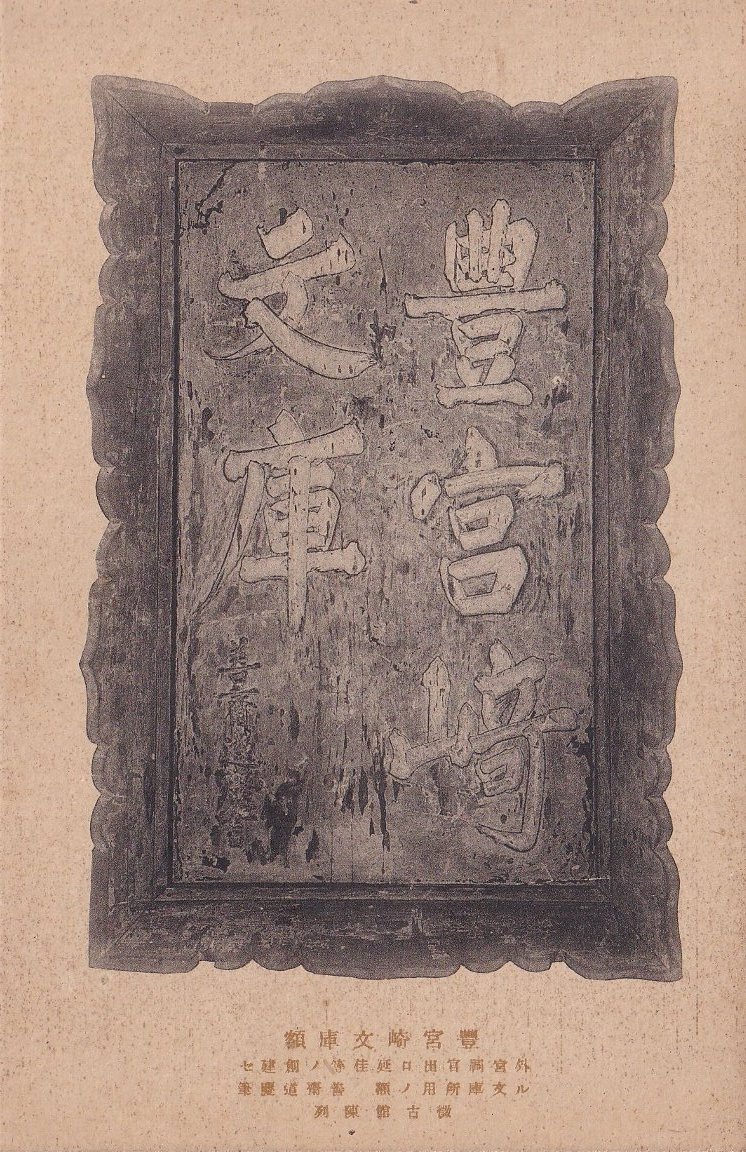 豊宮崎
文庫
善齋道慶
豐宮崎文庫額
外宮祠官出口延佳等ノ創建セ
ル文庫所用ノ額 善齋道慶筆
徴古館陳列